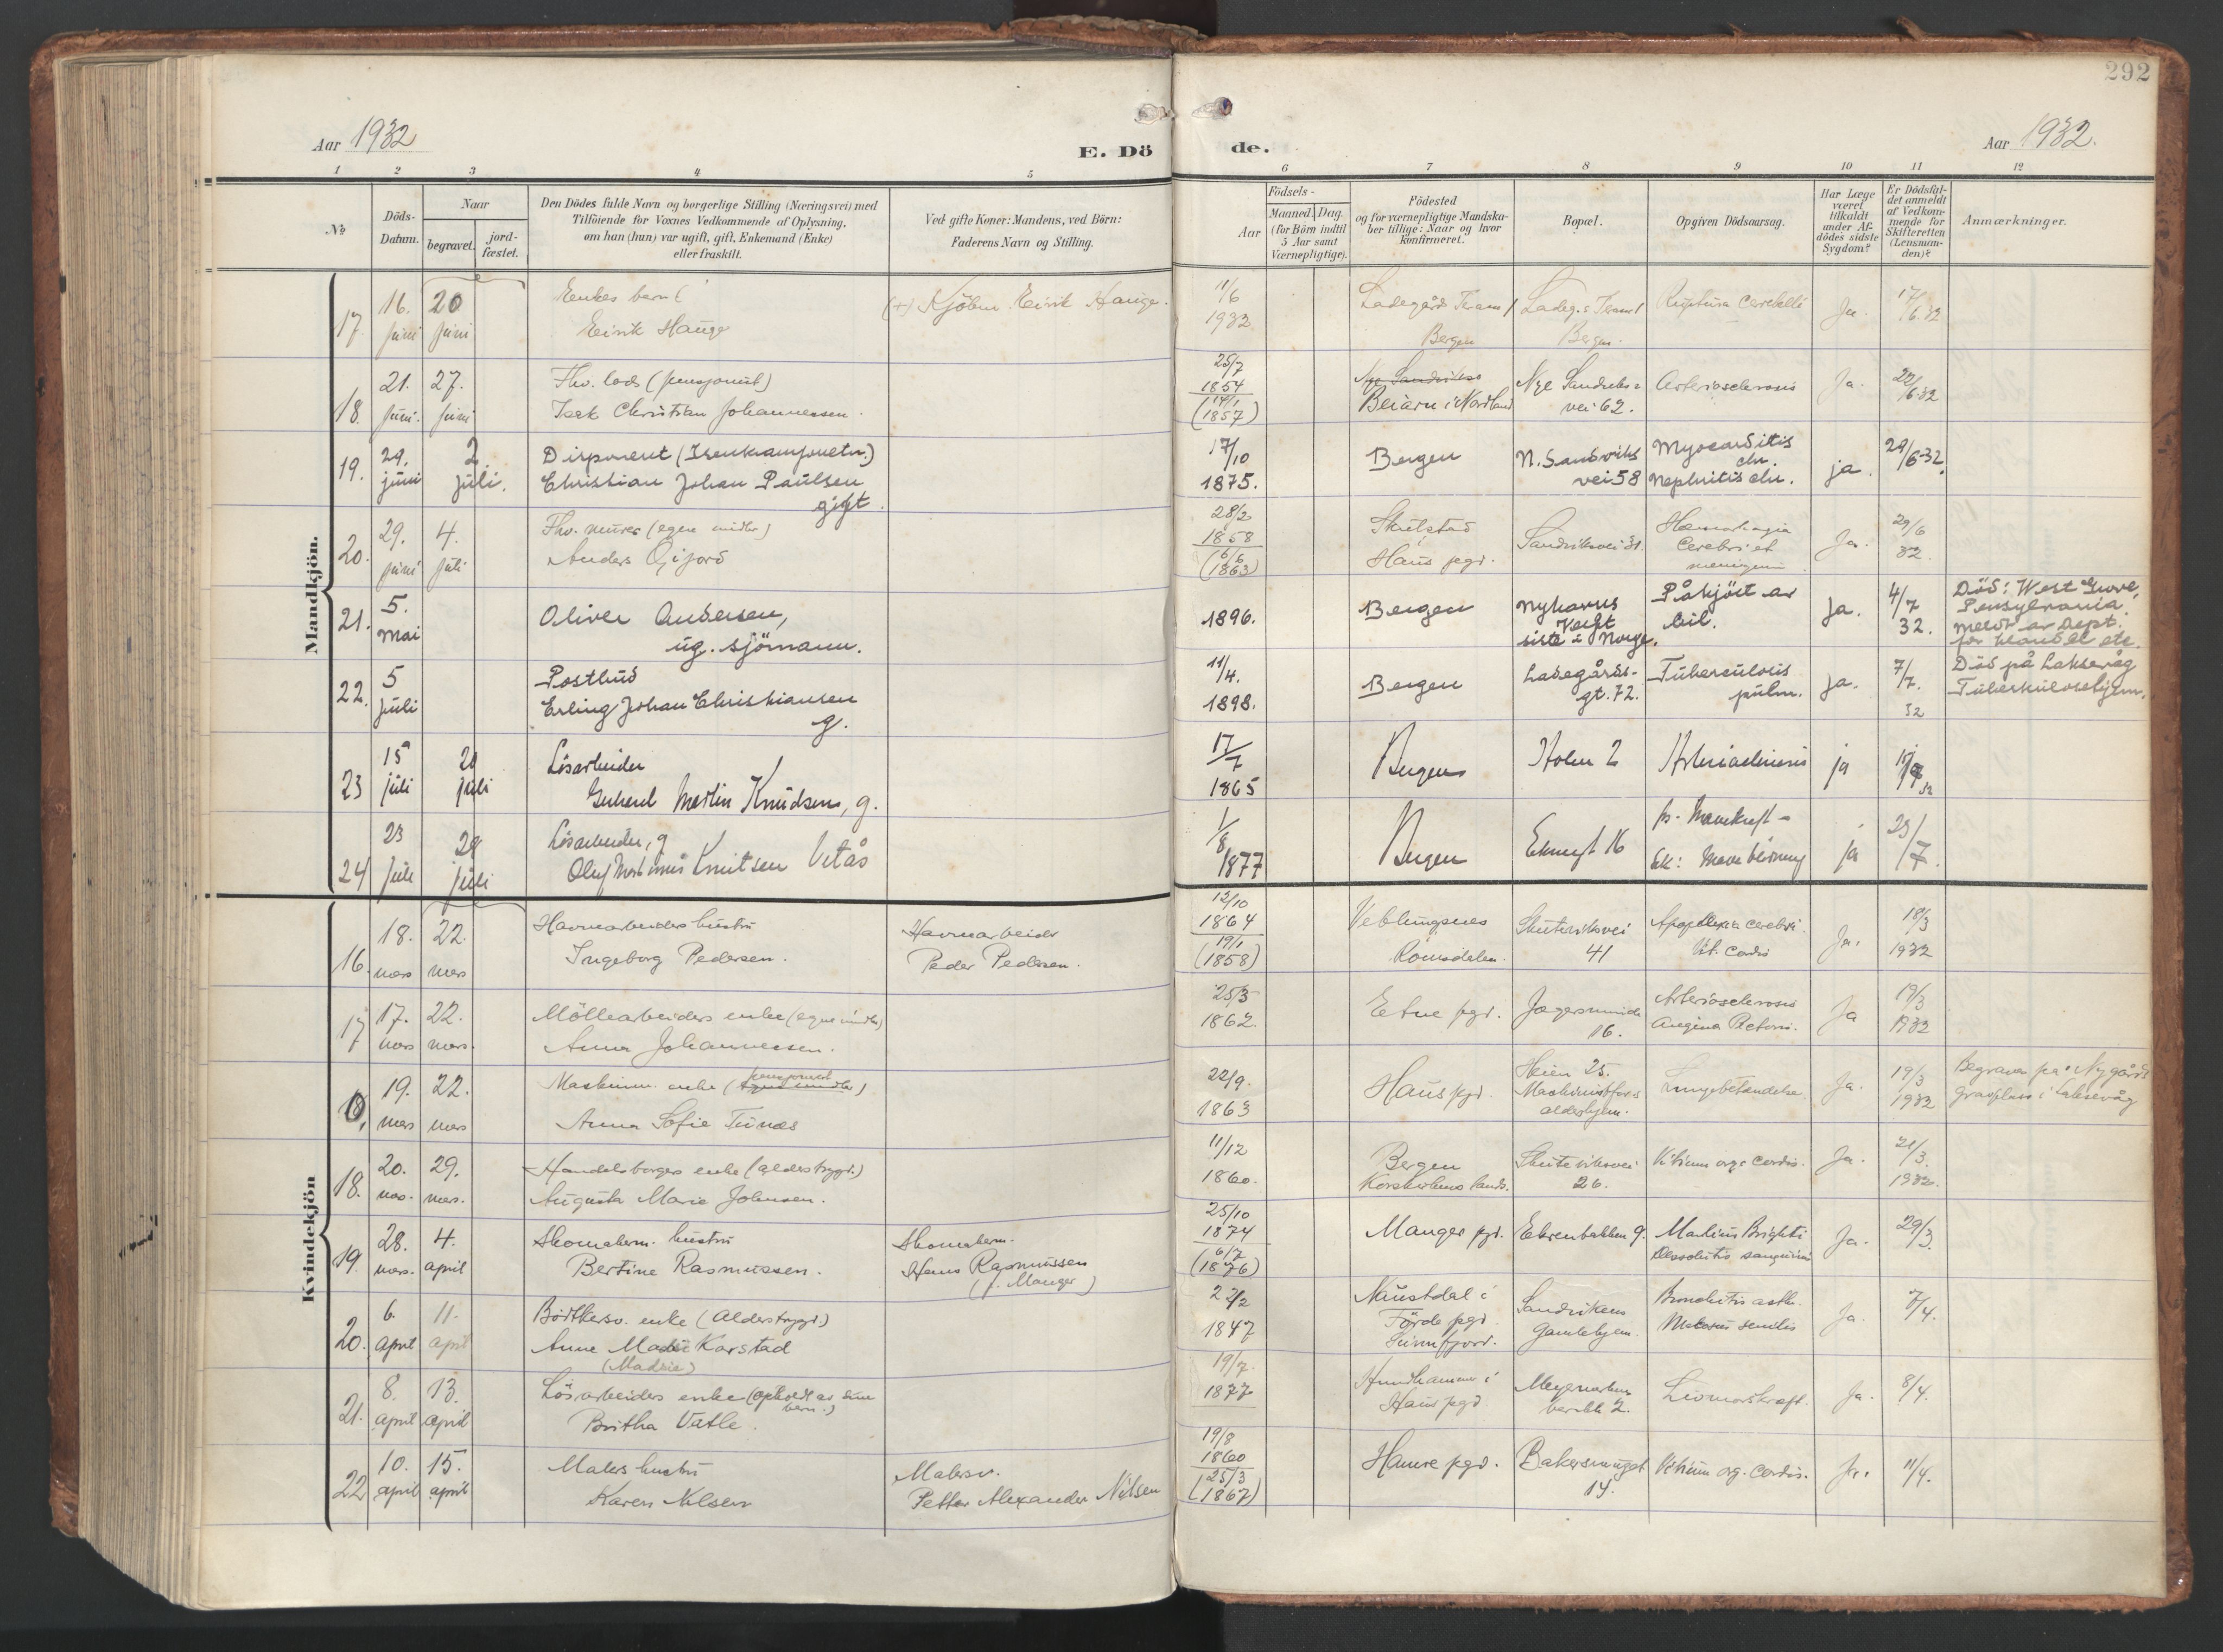 292
Aar 1932
E. Dö de.
Aar 1932.
1 2 3 4 5 6 7 8 9 10 11 12
№
Döds-
Datum.
Naar
begravet.
jord-
fæstet.
Den Dödes fulde Navn og borgerlige Stilling (Næringsvei) med
Tilföiende for Voxnes Vedkommende af Oplysning,
om han (hun) var ugift, gift, Enkemand (Enke)
eller fraskilt.
Ved gifte Koner: Mandens, ved Börn:
Faderens Navn og Stilling.
Aar
Födsels-
Maaned. Dag.
(for Börn indtil
5 Aar samt
Værnepligtige).
Födested
og for værnepligtige Mandska-
ber tillige: Naar og hvor
konfirmeret.
Bopæl.
Opgiven Dödsaarsag.
Har Læge
været
tilkaldt
under Af-
dödes sidste
Sygdom?
Er Dödsfal-
det anmeldt
af Vedkom-
mende for
Skifteretten
(Lensman-
den)?
Anmærkninger.
Mandkjön.
17. 16. juni 20 juni
Enkes barn
Eirik Hauge
(+) Kjöbm. Eirik Hauge.
11/6 1932
Bergen
Bergen.
Ruptura Cerebelli
Ja.
17/6.32
18. 21. juni. 27. juni
Fhv. lods (pensjonist)
Isak Christian Johannessen.
25/7
1854
(14/1
1857)
Beiarn i Nordland
Nye Sandviks-
vei 62.
Arteriosclerosis
Ja.
22/6.32
19. 29. juni 2. juli.
Disponent
Christian Johan Paulsen
gift.
17/10
1875.
Bergen
N. Sandviks
vei 58
Myocarditis
chr.
Nephritis chr.
ja.
29/6-32.
20. 29. juni 4. juli
Fhv. murer (egne midler)
Anders Gjijord
28/2
1858
(6/6
1863)
Haus pgd.
Sandviksvei 31.
Hæmorhagia
Cerebri et
meningum
Ja.
29/6
32.
21. 5. mai
Oliver Andersen,
ug. sjömann.
1896.
Bergen
Nyhavns
Verft
siste i Norge.
Påkjört av
bil.
ja.
4/7
32.
Död: West Grove,
Pensylvania.
meldt av Dept.
for handel etc.
22. 5 juli
Postbud
Erling Johan Christiansen
g.
11/4.
1898.
Bergen
Ladegårds-
gt. 72.
Tuberculosis
pulm.
ja.
7/7.
32
Död på Laksevåg
Tuberkulosehjem.
23 15 juli 20 juli
Lösarbeider
Gerhard Martin Knudsen, g.
17/7
1865
Bergen
Holen 2
Arteriosclerosis
ja
24 23 juli 28 juli
Lösarbeider, g
Oluf Martinus Knutsen Vetås
1/8
1877
Bergen
Ekregt 16
pr. Mavekreft -
sek: Mave blödning
ja
23/7.
Kvindekjön
16. 18. mars 22. mars
Havnearbeiders hustru
Ingeborg Pedersen.
Havnearbeider
Peder Pedersen.
12/10
1864
(19/1
1858)
Veblungsnes
Romsdalen.
Skuteviksvei
41
Apoplexia cerebri.
Vit. Cordis
Ja.
18/3
1932
17 17. mars 22. mars.
Möllearbeiders enke (egne midler)
Anna Johannessen.
25/3
1862.
Etne pgd.
Jægersminde
16.
Arteriosclerosis
Angina Pectoris.
Ja
19/3
1932
18, 19. mars 22. mars
Maskinm. enke (pensjonist)
Anna Sofie Tunæs
22/9.
1863
Haus pgd.
Heien 25.
Maskinistfor.s
aldershjem.
Lungebetændelse
Ja.
19/3
1932
Begraves på Nygårds
gravplass i Laksevåg
18. 20. mars. 29. mars.
Handelsborgers enke (alderstrygd.)
Augusta Marie Johnsen.
11/12
1860.
Bergen
Korskirkens landd.
Skuteviksvei
26.
Vitium org. Cordis.
Ja.
21/3.
1932.
19. 28. mars. 4. april
Skomakerm. hustru
Bertine Rasmussen.
Skomakerm.
Hans Rasmussen
(f. Manger)
25/10
1874
(6/7
1876)
Manger pgd.
Ekrenbakken 9.
Morbus Brighti
Dessolutio sanguinis
Ja.
29/3.
20. 6. april 11. april
Bödkersv. enke (Alderstrygd.)
Anne Madsi Karstad
(Madsie)
22/2
1847
Naustdal i
Förde pgd.
Sunnfjord.
Sandvikens
Gamlehjem.
Bronchitis asth.
Marasmus senilis
Ja.
7/4.
21. 8. april 13. april
Lösarbeiders enke (opholdt av sine
barn.)
Britha Vatle.
19/7.
1877
Hundhammer i
Haus pgd
2.
Livmorskraft.
Ja.
8/4.
22 10. april 15. april
Malers hustru
Karen Nilsen
Malersv.
Petter Alexander Nilsen
19/8
1860
(25/3
1867)
Hamre pgd.
Bakersmuget
14.
Vitium org. Cordis.
Ja.
11/4.